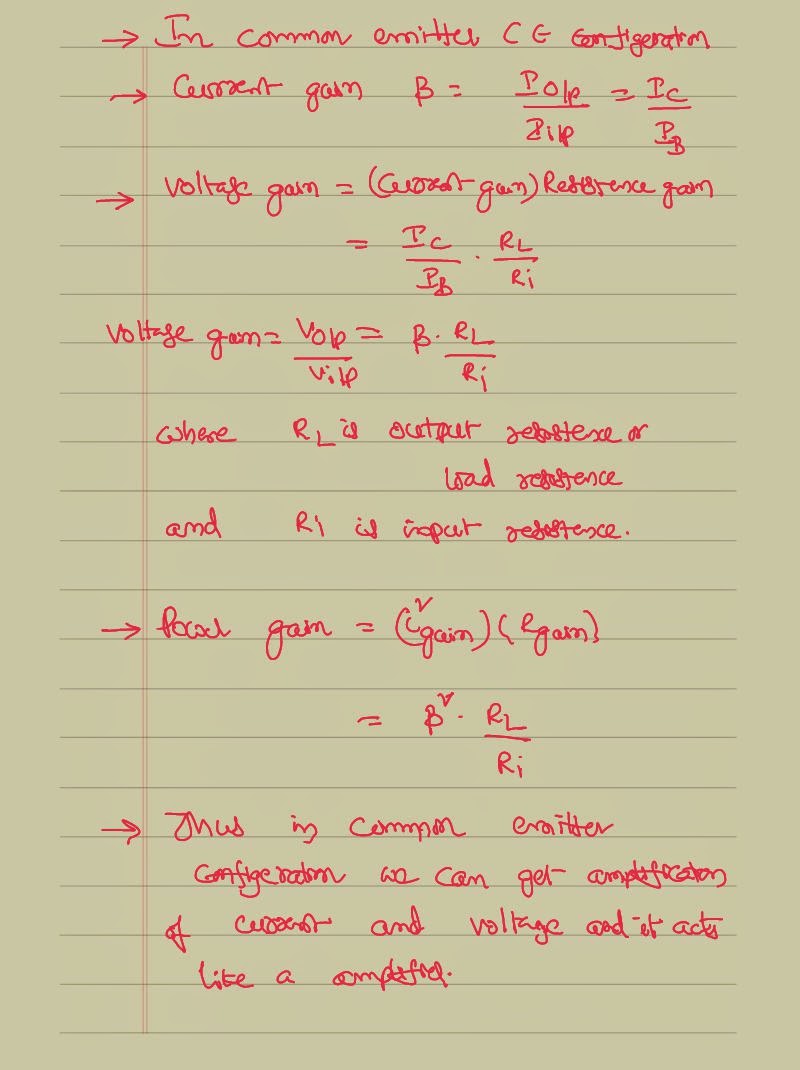 → In common emitter CE configeration
→ Current gain β = I o/p / I i/p = I_C / I_B
→ Voltage gain = (Current gain) Resistence gain
= I_C / I_B . R_L / R_i
Voltage gain = V o/p / V i/p = β . R_L / R_i
where R_L is output resistence or
load resistence
and Ri is input resistence.
→ Power gain = (i² gain) (R gain)
= β² . R_L / R_i
→ Thus in common emitter
configeration we can get amplification
of current and voltage and it acts
like a amplifier.